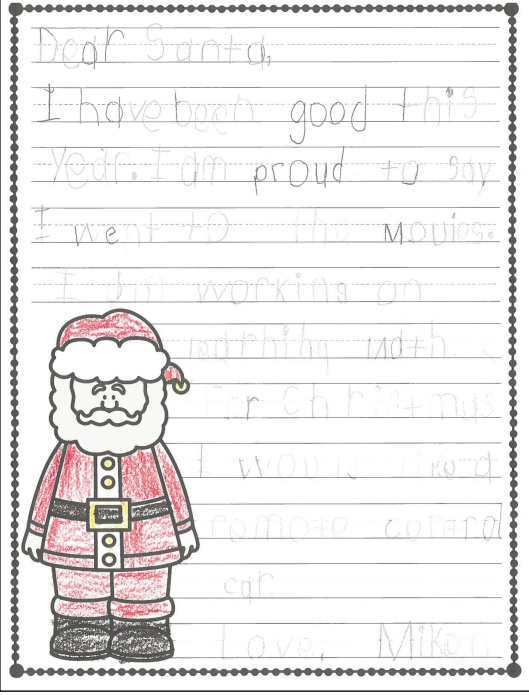 Dear Santa,
I have been good this
year. I am proud to say
I went to the movies.
I am working on
learning math
For Christmas
I would like a
remote control
car
Love,